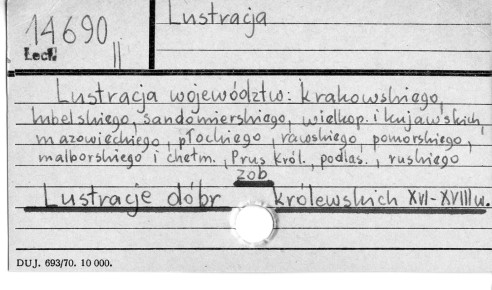 14690
II
Czeck
Lustracja
Lustracja województw: krakowskiego,
lubelskiego, sandomierskiego, wielkop. i kujawskich,
mazowieckiego, płockiego, rawskiego, pomorskiego,
malborskiego i chełm., Prus Król., podlas., ruskiego
zob
Lustracje dóbr królewskich XVI-XVIII w.
DUJ. 693/70. 10 000.